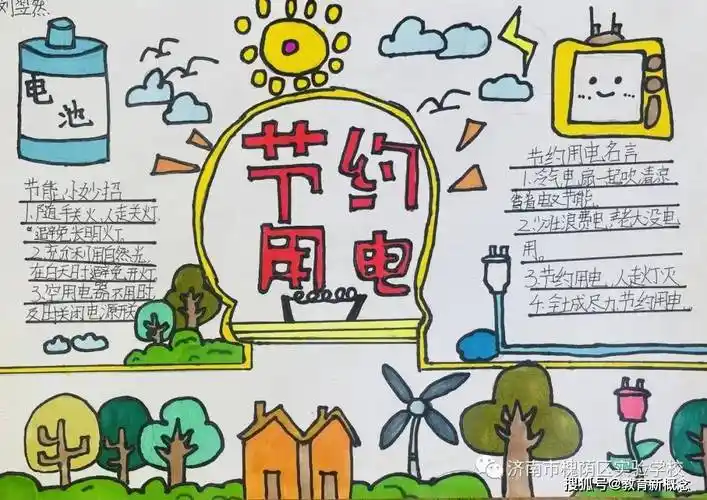 刘翌然
电池
节约
用电
节能小妙招
1.随手关火,人走关灯
避免长明灯。
2.充分利用自然光,
在白天时避免开灯
3.空用电器不用时
及时关闭电源开关
节约用电名言
1.冷气电扇一起吹清凉
省电又节能。
2.少壮浪费电,老大没电
用。
3.节约用电,人走灯灭
4.
节约用电
济南市槐荫区实验学校
搜狐号@教育新概念